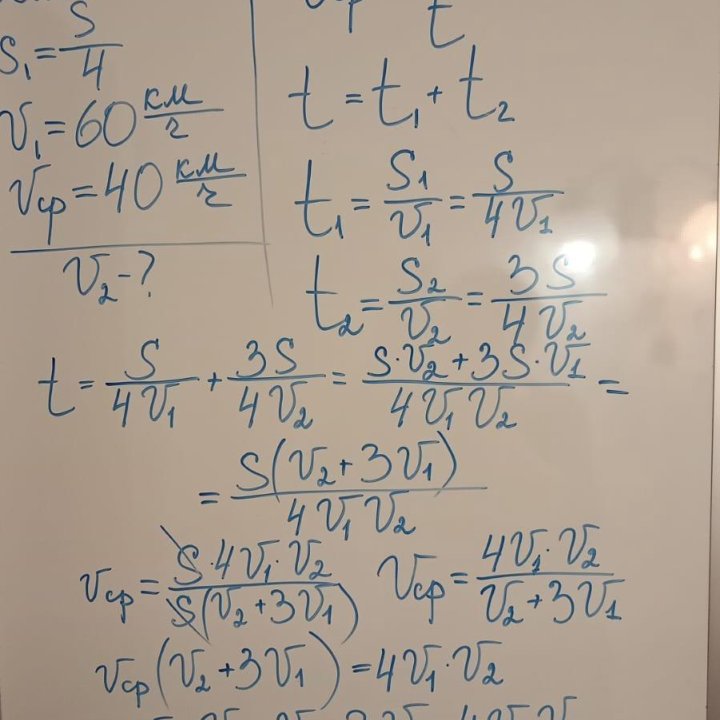 S₁ = S/4
v₁ = 60 км/ч
vср = 40 км/ч
v₂ - ?
t
t = t₁ + t₂
t₁ = S₁/v₁ = S/4v₁
t₂ = S₂/v₂ = 3S/4v₂
t = S/4v₁ + 3S/4v₂ = S·v₂ + 3S·v₁/4v₁v₂ =
= S(v₂ + 3v₁)/4v₁v₂
vср = S·4v₁·v₂/S(v₂ + 3v₁) vср = 4v₁·v₂/v₂ + 3v₁
vср(v₂ + 3v₁) = 4v₁·v₂